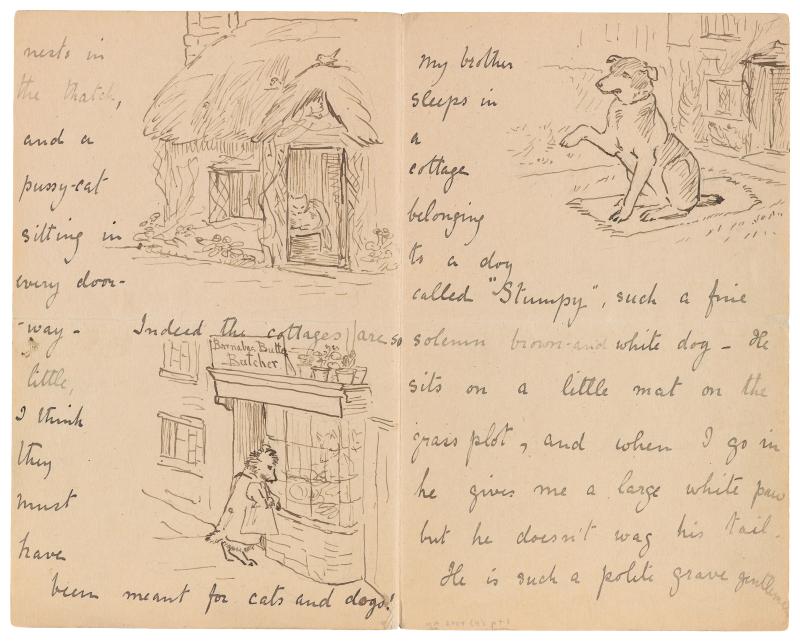 nests in
the thatch,
and a
pussy-cat
sitting in
every door-
-way- Indeed the cottages are so
little,
I think
they
must
have
been meant for cats and dogs!
Barnabas Butts
Butcher
My brother
sleeps in
a
cottage
belonging
to a dog
called "Stumpy", such a fine
solemn brown-and white dog - He
sits on a little mat on the
grass plot, and when I go in
he gives me a large white paw
but he doesn't wag his tail.
He is such a polite grave gentleman